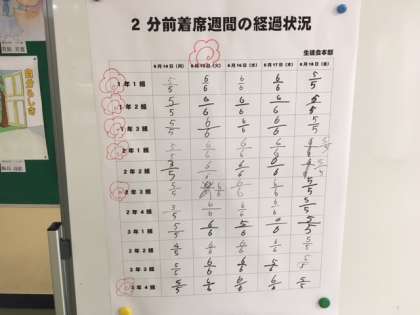 2 分前着席週間の経過状況
生徒会本部
9月14日(月) 9月15日(火) 9月16日(水) 9月17日(木) 9月18日(金)
1年1組 5/5 6/6 6/6 6/6 5/5
1年2組 5/5 6/6 6/6 6/6 5/5
1年3組 5/5 6/6 6/6 6/6 5/5
2年1組 5/5 6/6 6/6 6/6 5/5
2年2組 3/5 6/6 6/6 5/5
2年3組 5/5 6/6 6/6 6/6 5/5
2年4組 3/5 6/6 6/6 6/6 5/5
3年1組 5/5 6/6 5/6 6/6 5/5
3年2組 4/5 6/6 6/6 6/6 5/5
3年3組 5/5 6/6 6/6 5/6 5/5
3年4組 5/5 6/6 6/6 6/6 5/5
自分らしさ